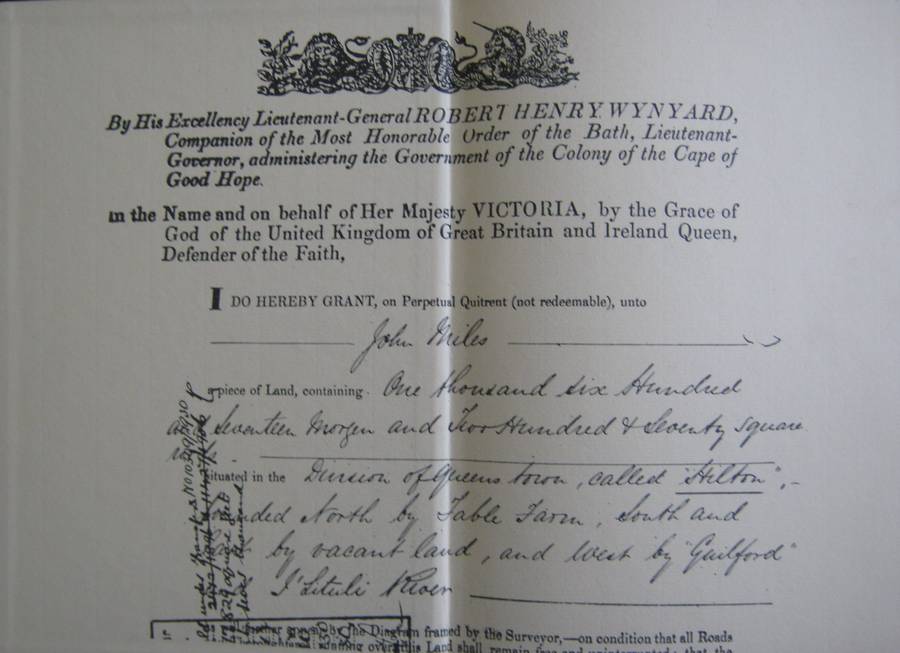 By His Excellency Lieutenant-General ROBERT HENRY WYNYARD,
Companion of the Most Honorable Order of the Bath, Lieutenant-
Governor, administering the Government of the Colony of the Cape of
Good Hope.
In the Name and on behalf of Her Majesty VICTORIA, by the Grace of
God of the United Kingdom of Great Britain and Ireland Queen,
Defender of the Faith,
I DO HEREBY GRANT, on Perpetual Quitrent (not redeemable), unto
John Miles
a piece of Land, containing One thousand six Hundred
and Seventeen Morgen and Two Hundred & Seventy Square
situated in the Division of Queenstown, called "Hilton",
bounded North by Table Farm, South and
by vacant land, and West by "Guilford"
River
by the Diagram framed by the Surveyor,—on condition that all Roads
running over this Land shall remain free and uninterrupted; that the